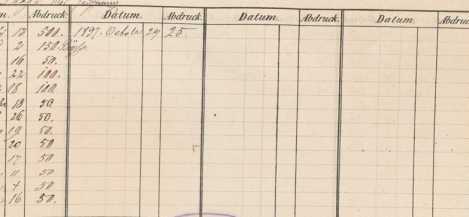 Abdruck. Datum. Abdruck. Datum. Abdruck. Datum. Abdruck
12 500. 1897. Octob. 29 25.
2 150
16 50.
22 100.
18 100
18 50
26 50.
19 50.
20 50
17 50
11 50
4 50
16 50.